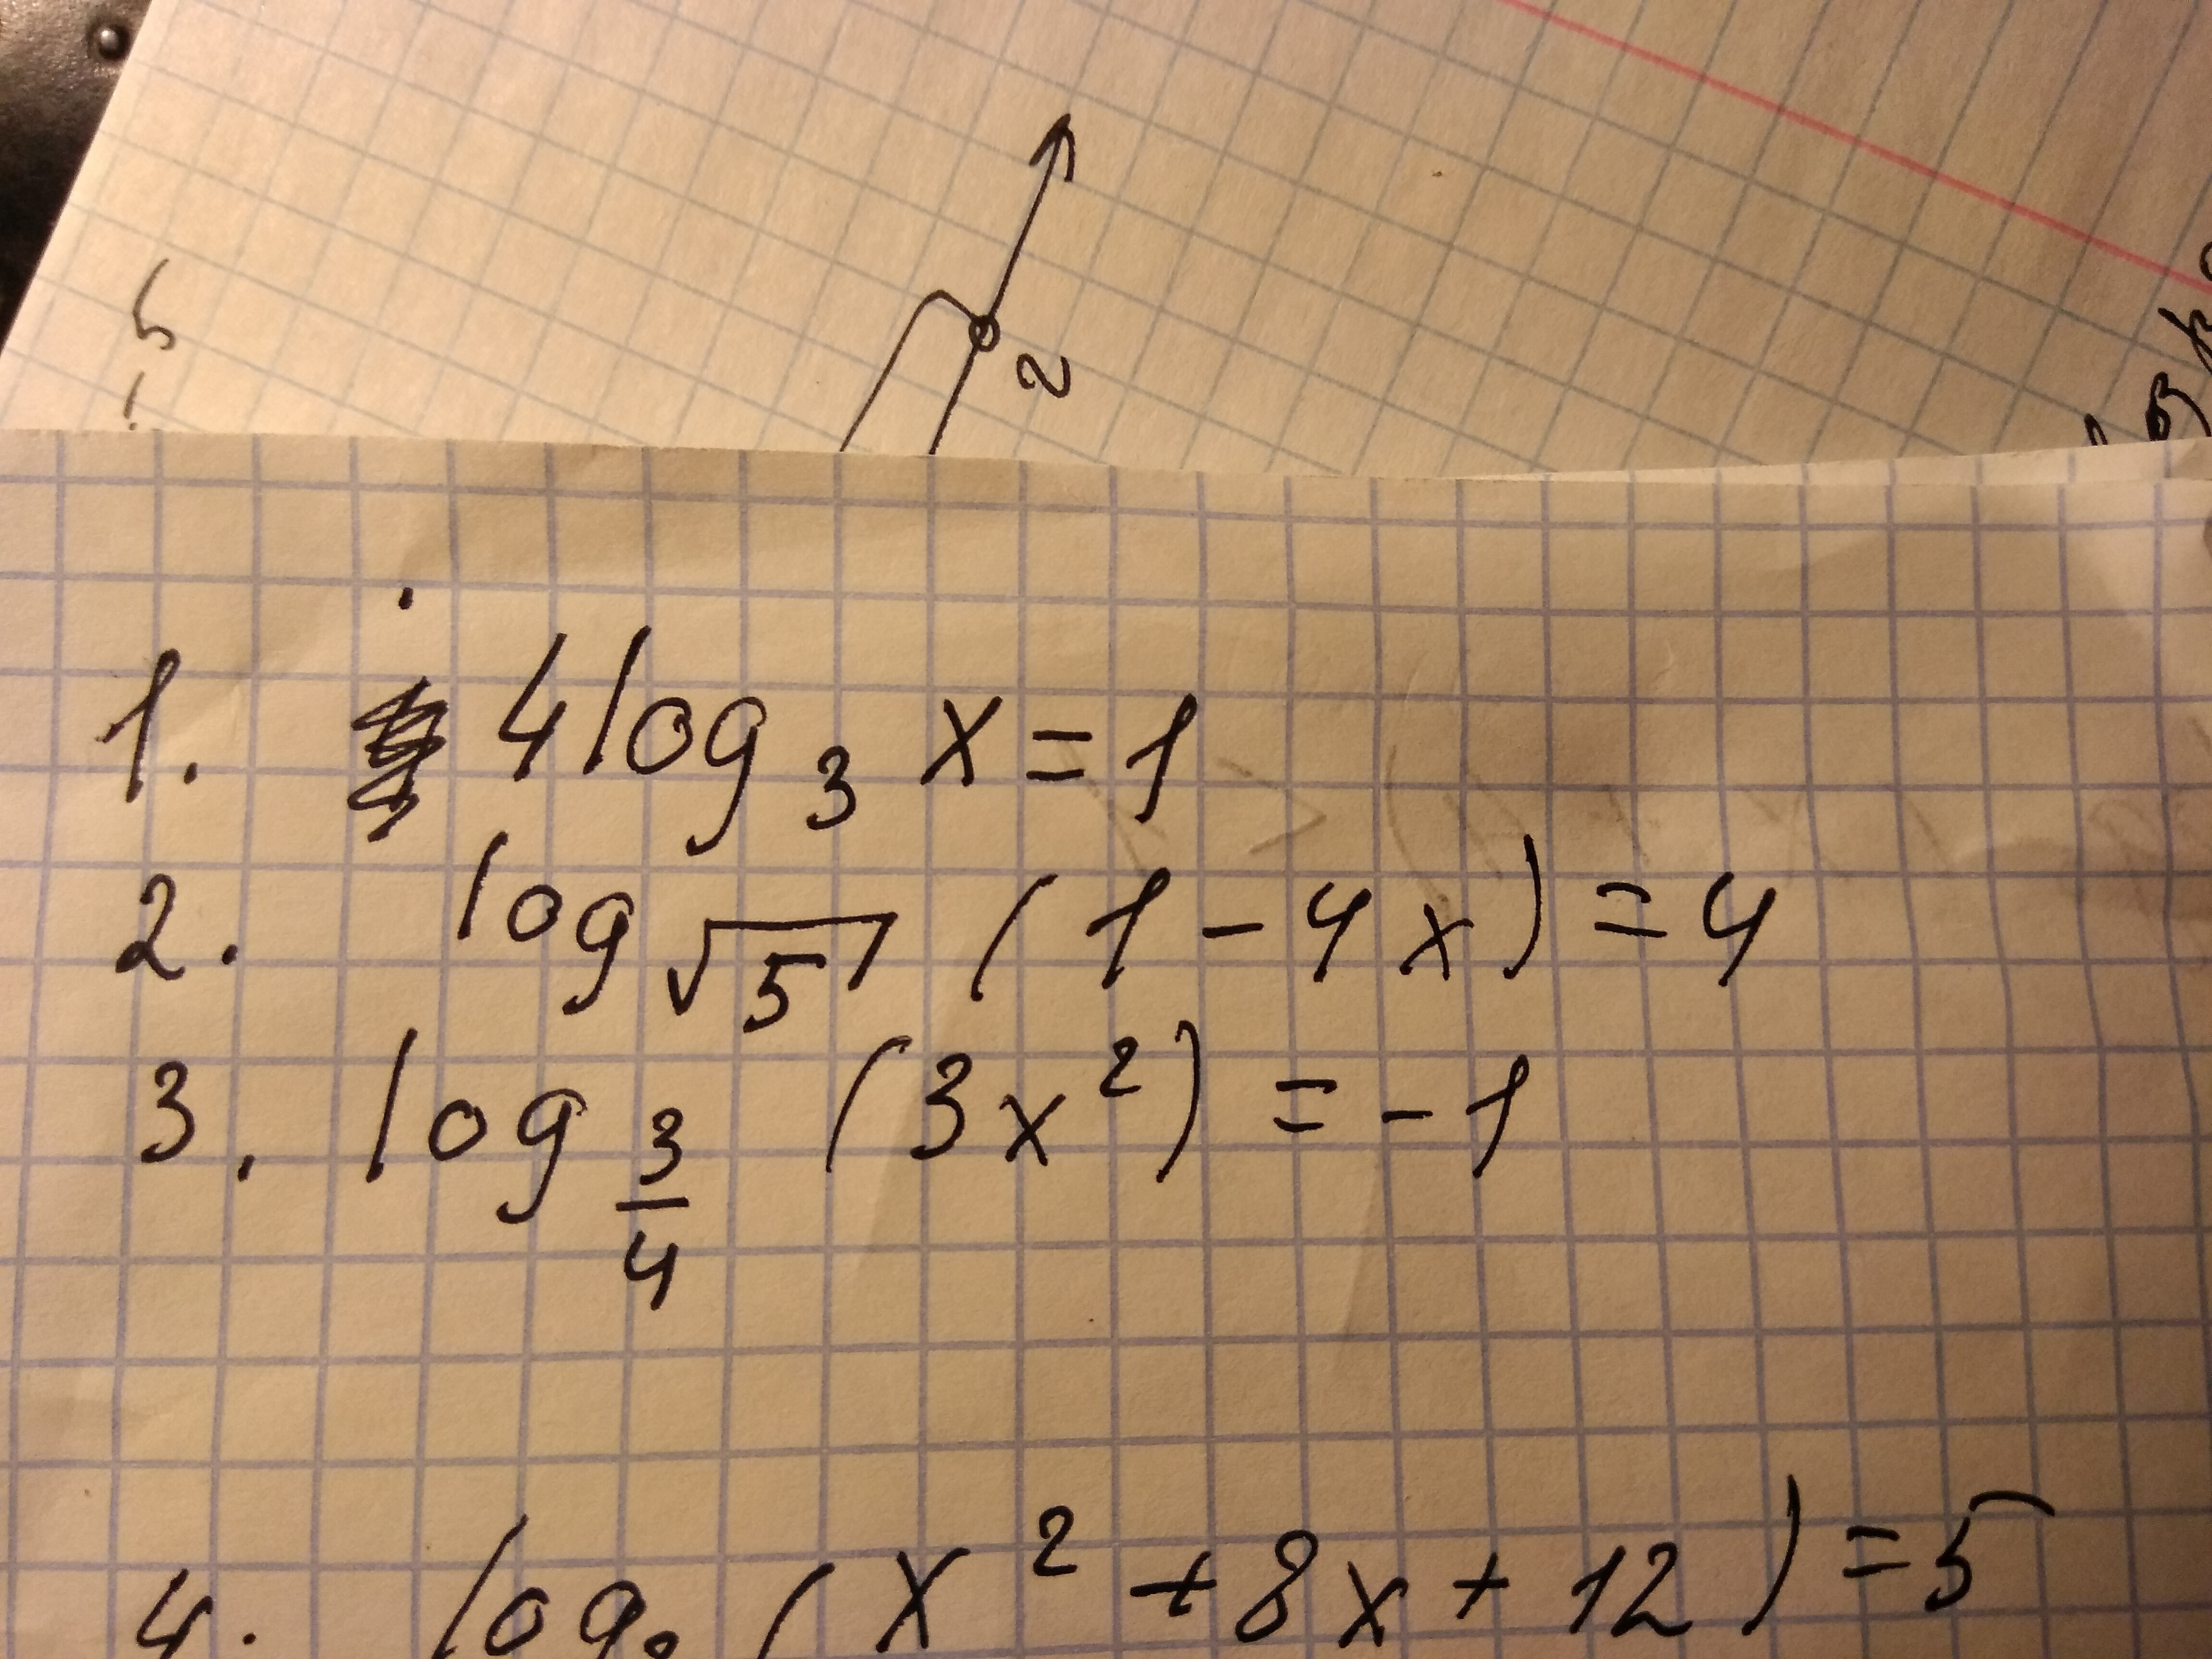 2
1. 4 log₃ x = 1
2. log√5 (1 - 4x) = 4
3. log 3/4 (3x²) = -1
4. log (x² + 8x + 12) = 5